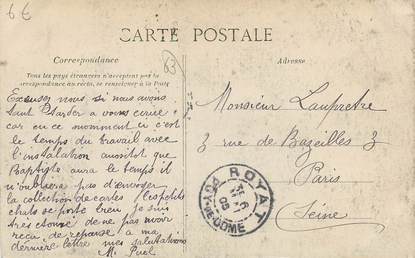 6€
CARTE POSTALE
Correspondance
Adresse
Tous les pays étrangers n'acceptent pas la
correspondance au recto, se renseigner à la Poste
63
Excusez nous si nous avons
tant tarder a vous ecrire
car en ce momment ci c'est
le temps du travail avec
l'instalation aussitot que
Baptiste aura le temps il
n'oubliera pas d'envoyer
la collection de cartes les petits
chats se porte bien je suis
tres etonné de ne pas avoir
recu de reponse a ma
dernière lettre mes salutations
M. Puel
Monsieur Laupretre
3 rue de Bazeilles 3
Paris
Seine
ROYAT
PUY-DE-DOME